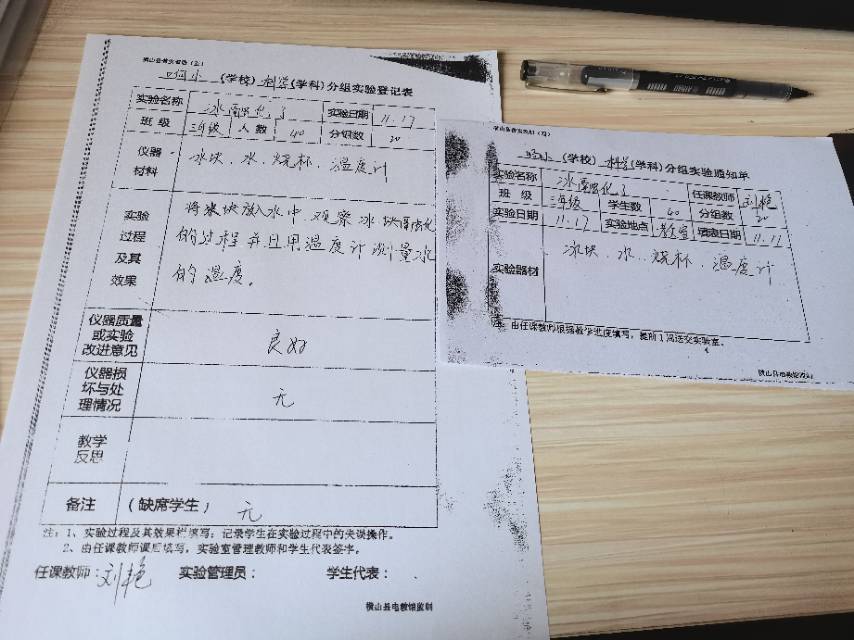 响小 (学校) 科学 (学科) 分组实验登记表
实验名称 冰融化了 实验日期 11.17
班 级 三年级 人 数 40 分组数 20
仪器材料 冰块、水、烧杯、温度计
实验过程及其效果
将冰块放入水中,观察冰块融化
的过程并且用温度计测量水
的温度。
仪器质量或实验改进意见 良好
仪器损坏与处理情况 无
教学反思
备注 (缺席学生) 无
注:1、实验过程及其效果栏填写:记录学生在实验过程中的失误操作。
2、由任课教师课后填写,实验室管理教师和学生代表签字。
任课教师:刘艳 实验管理员: 学生代表:
横山县电教馆监制
响小 (学校) 科学 (学科) 分组实验通知单
实验名称 冰融化了 任课教师 刘艳
班 级 三年级 学生数 40 分组数 20
实验日期 11.17 实验地点 教室 填表日期 11.17
实验器材 冰块、水、烧杯、温度计
注:由任课教师根据教学进度填写,提前1周送交实验室。
横山县电教馆监制